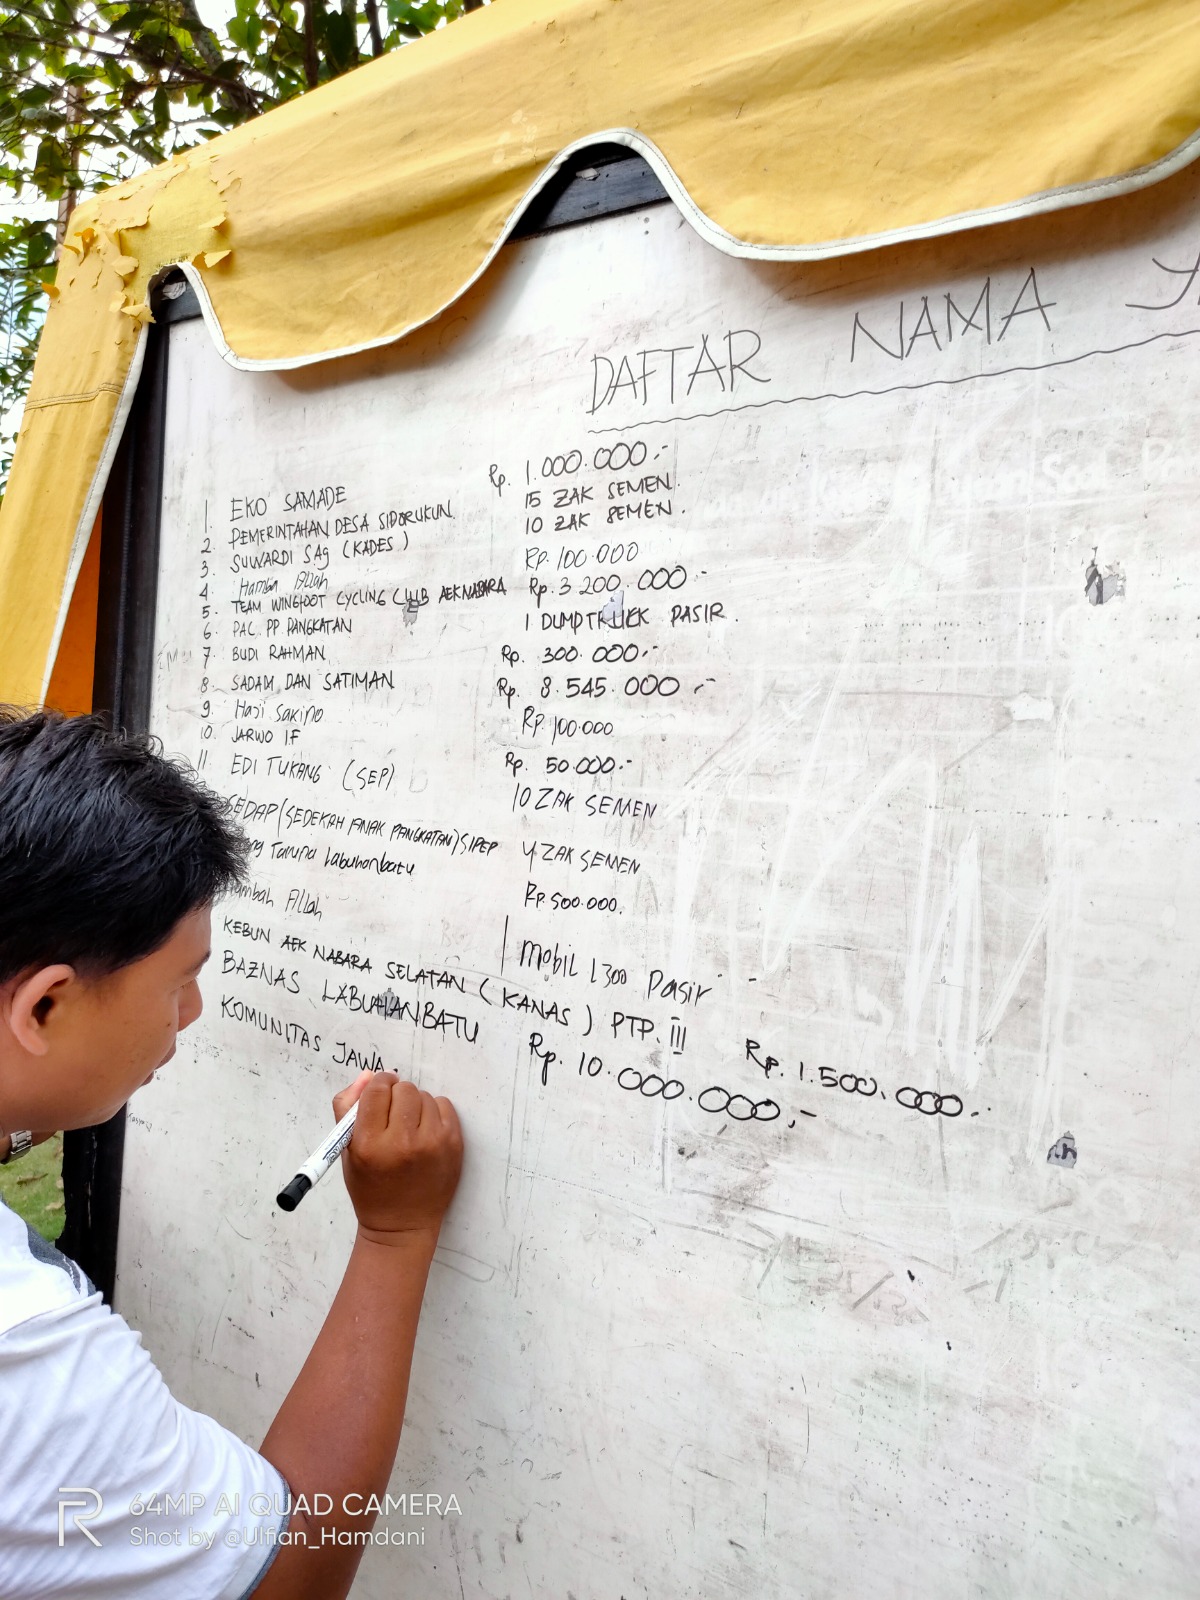 DAFTAR NAMA
1 EKO SAMADE Rp. 1.000.000.-
2. PEMERINTAHAN DESA SIDORUKUN. 15 ZAK SEMEN.
3. SUWARDI SAg (KADES) 10 ZAK SEMEN.
4. Hamba Allah RP. 100.000
5. TEAM WINGFOOT CYCLING CLUB AEKNABARA Rp. 3.200.000.-
6. PAC. PP PANGKATAN 1 DUMPTRUCK PASIR.
7. BUDI RAHMAN Rp. 300.000.-
8. SADAM DAN SATIMAN Rp. 8.545.000,-
9. Haji Sakino RP. 100.000
10. JARWO I.F Rp. 50.000.-
11 EDI TUKANG (SEP) 10 ZAK SEMEN
SEDAP (SEDEKAH ANAK PANGKATAN) SIPEP 4 ZAK SEMEN
Taruna Labuhanbatu RP. 500.000.
Hambah Allah 1 mobil L300 Pasir -
KEBUN AEK NABARA SELATAN (KANAS) PTP. III Rp. 1.500.000.-
BAZNAS LABUHANBATU Rp. 10.000.000,-
KOMUNITAS JAWA.
R 64MP AI QUAD CAMERA
Shot by @Ulfian_Hamdani